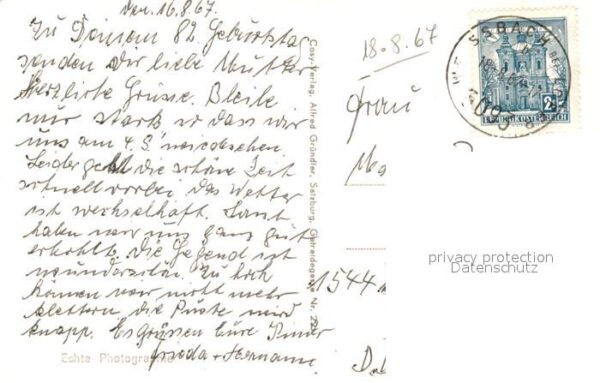 den 16.8.67.
Zu Deinem 82. Geburtstag
senden dir liebe Mutter
herzliche Grüsse. Bleibe
nur stark so dass wir
uns am 4.9. wiedersehen
Leider geht die schöne Zeit
schnell vorbei das Wetter
ist wechselhaft. Sonst
haben wir uns ganz gut
erholt. die Gegend ist
wunderschön. Zu hoch
können wir nicht mehr
klettern die Puste wird
knapp. Es Grüssen Eure Kinder
Frieda + Hermann
Echte Photographie
Cosy-Verlag, Alfred Gründler, Salzburg, Getreidegasse Nr. 22
18.8.67
Frau
1544
SSBACH
2
REPUBLIK ÖSTERREICH
privacy protection
Datenschutz